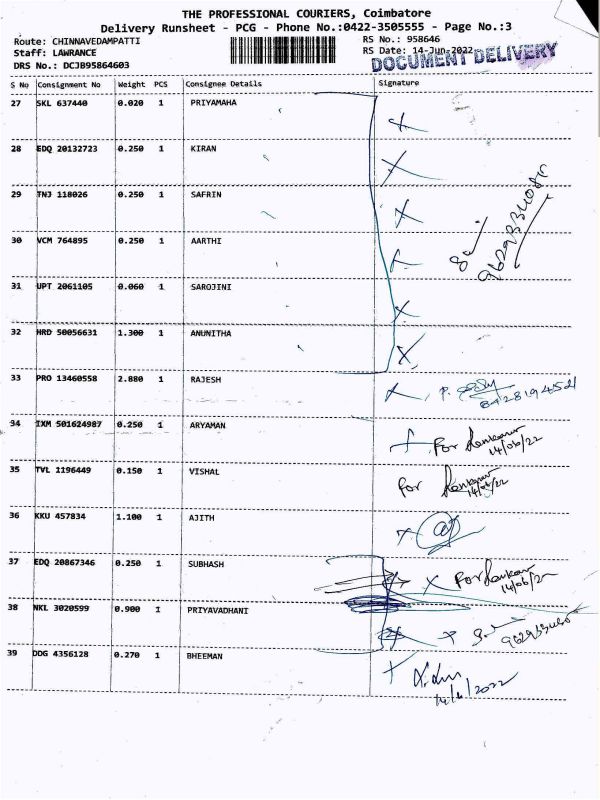 THE PROFESSIONAL COURIERS, Coimbatore
Delivery Runsheet - PCG - Phone No.:0422-3505555 - Page No.:3
Route: CHINNAVEDAMPATTI
RS No.: 958646
Staff: LAWRANCE
RS Date: 14-Jun-2022
DRS No.: DCJB95864603
DOCUMENT DELIVERY
S No Consignment No Weight PCS Consignee Details Signature
27 SKL 637440 0.020 1 PRIYAMAHA
28 EDQ 20132723 0.250 1 KIRAN
29 TNJ 118026 0.250 1 SAFRIN
30 VCM 764895 0.250 1 AARTHI
31 UPT 2061105 0.060 1 SAROJINI
32 HRD 50056631 1.300 1 ANUNITHA
33 PRO 13460558 2.880 1 RAJESH
34 IXM 501624987 0.250 1 ARYAMAN For
14/06/22
35 TVL 1196449 0.150 1 VISHAL for
14/06/22
36 KKU 457834 1.100 1 AJITH
37 EDQ 20867346 0.250 1 SUBHASH X For
14/06/22
38 NKL 3020599 0.900 1 PRIYAVADHANI
39 DDG 4356128 0.270 1 BHEEMAN
14/6/2022